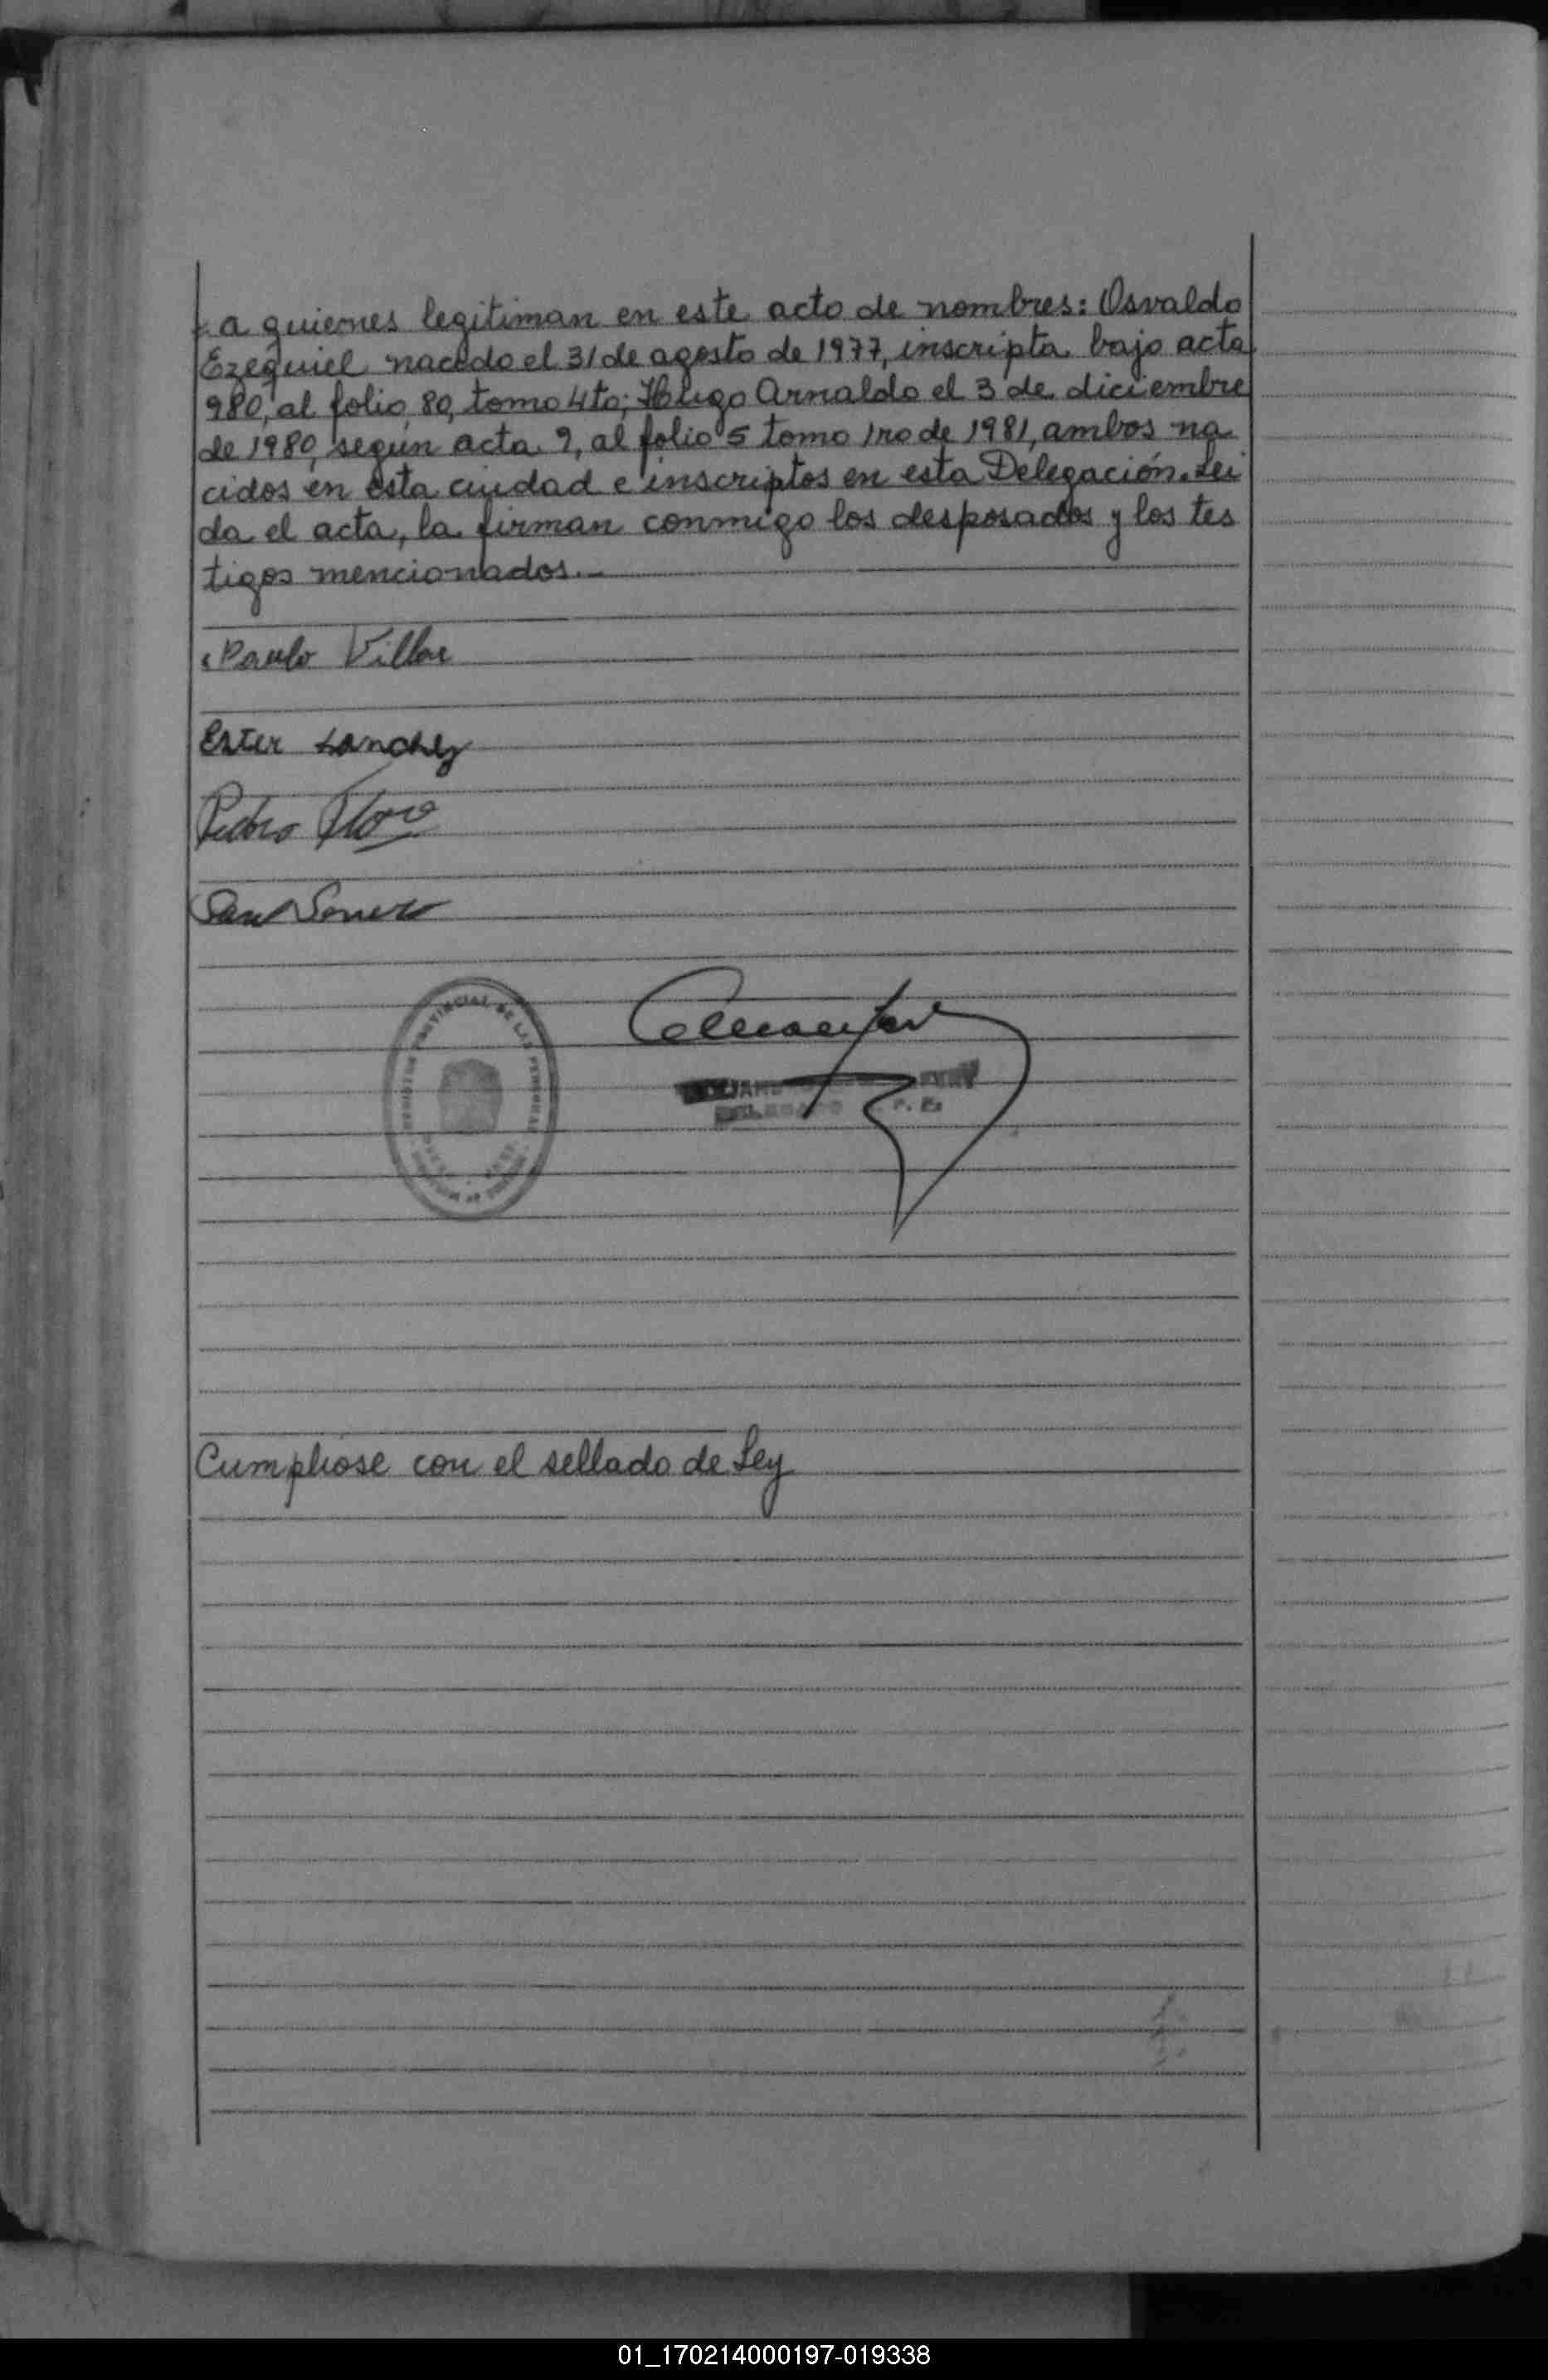 a quienes legitiman en este acto de nombres: Osvaldo
Ezequiel nacido el 31 de agosto de 1977, inscripta bajo acta
980, al folio 80, tomo 4to; Hugo Arnaldo el 3 de diciembre
de 1980, según acta 9, al folio 5 tomo 1ro de 1981, ambos na
cidos en esta ciudad e inscriptos en esta Delegación. Lei
da el acta, la firman conmigo los desposados y los tes
tigos mencionados.-
Paulo Villar
Ester Sanchez
Pedro
REGISTRO PROVINCIAL DE LAS PERSONAS
Cumplióse con el sellado de Ley
01_170214000197-019338